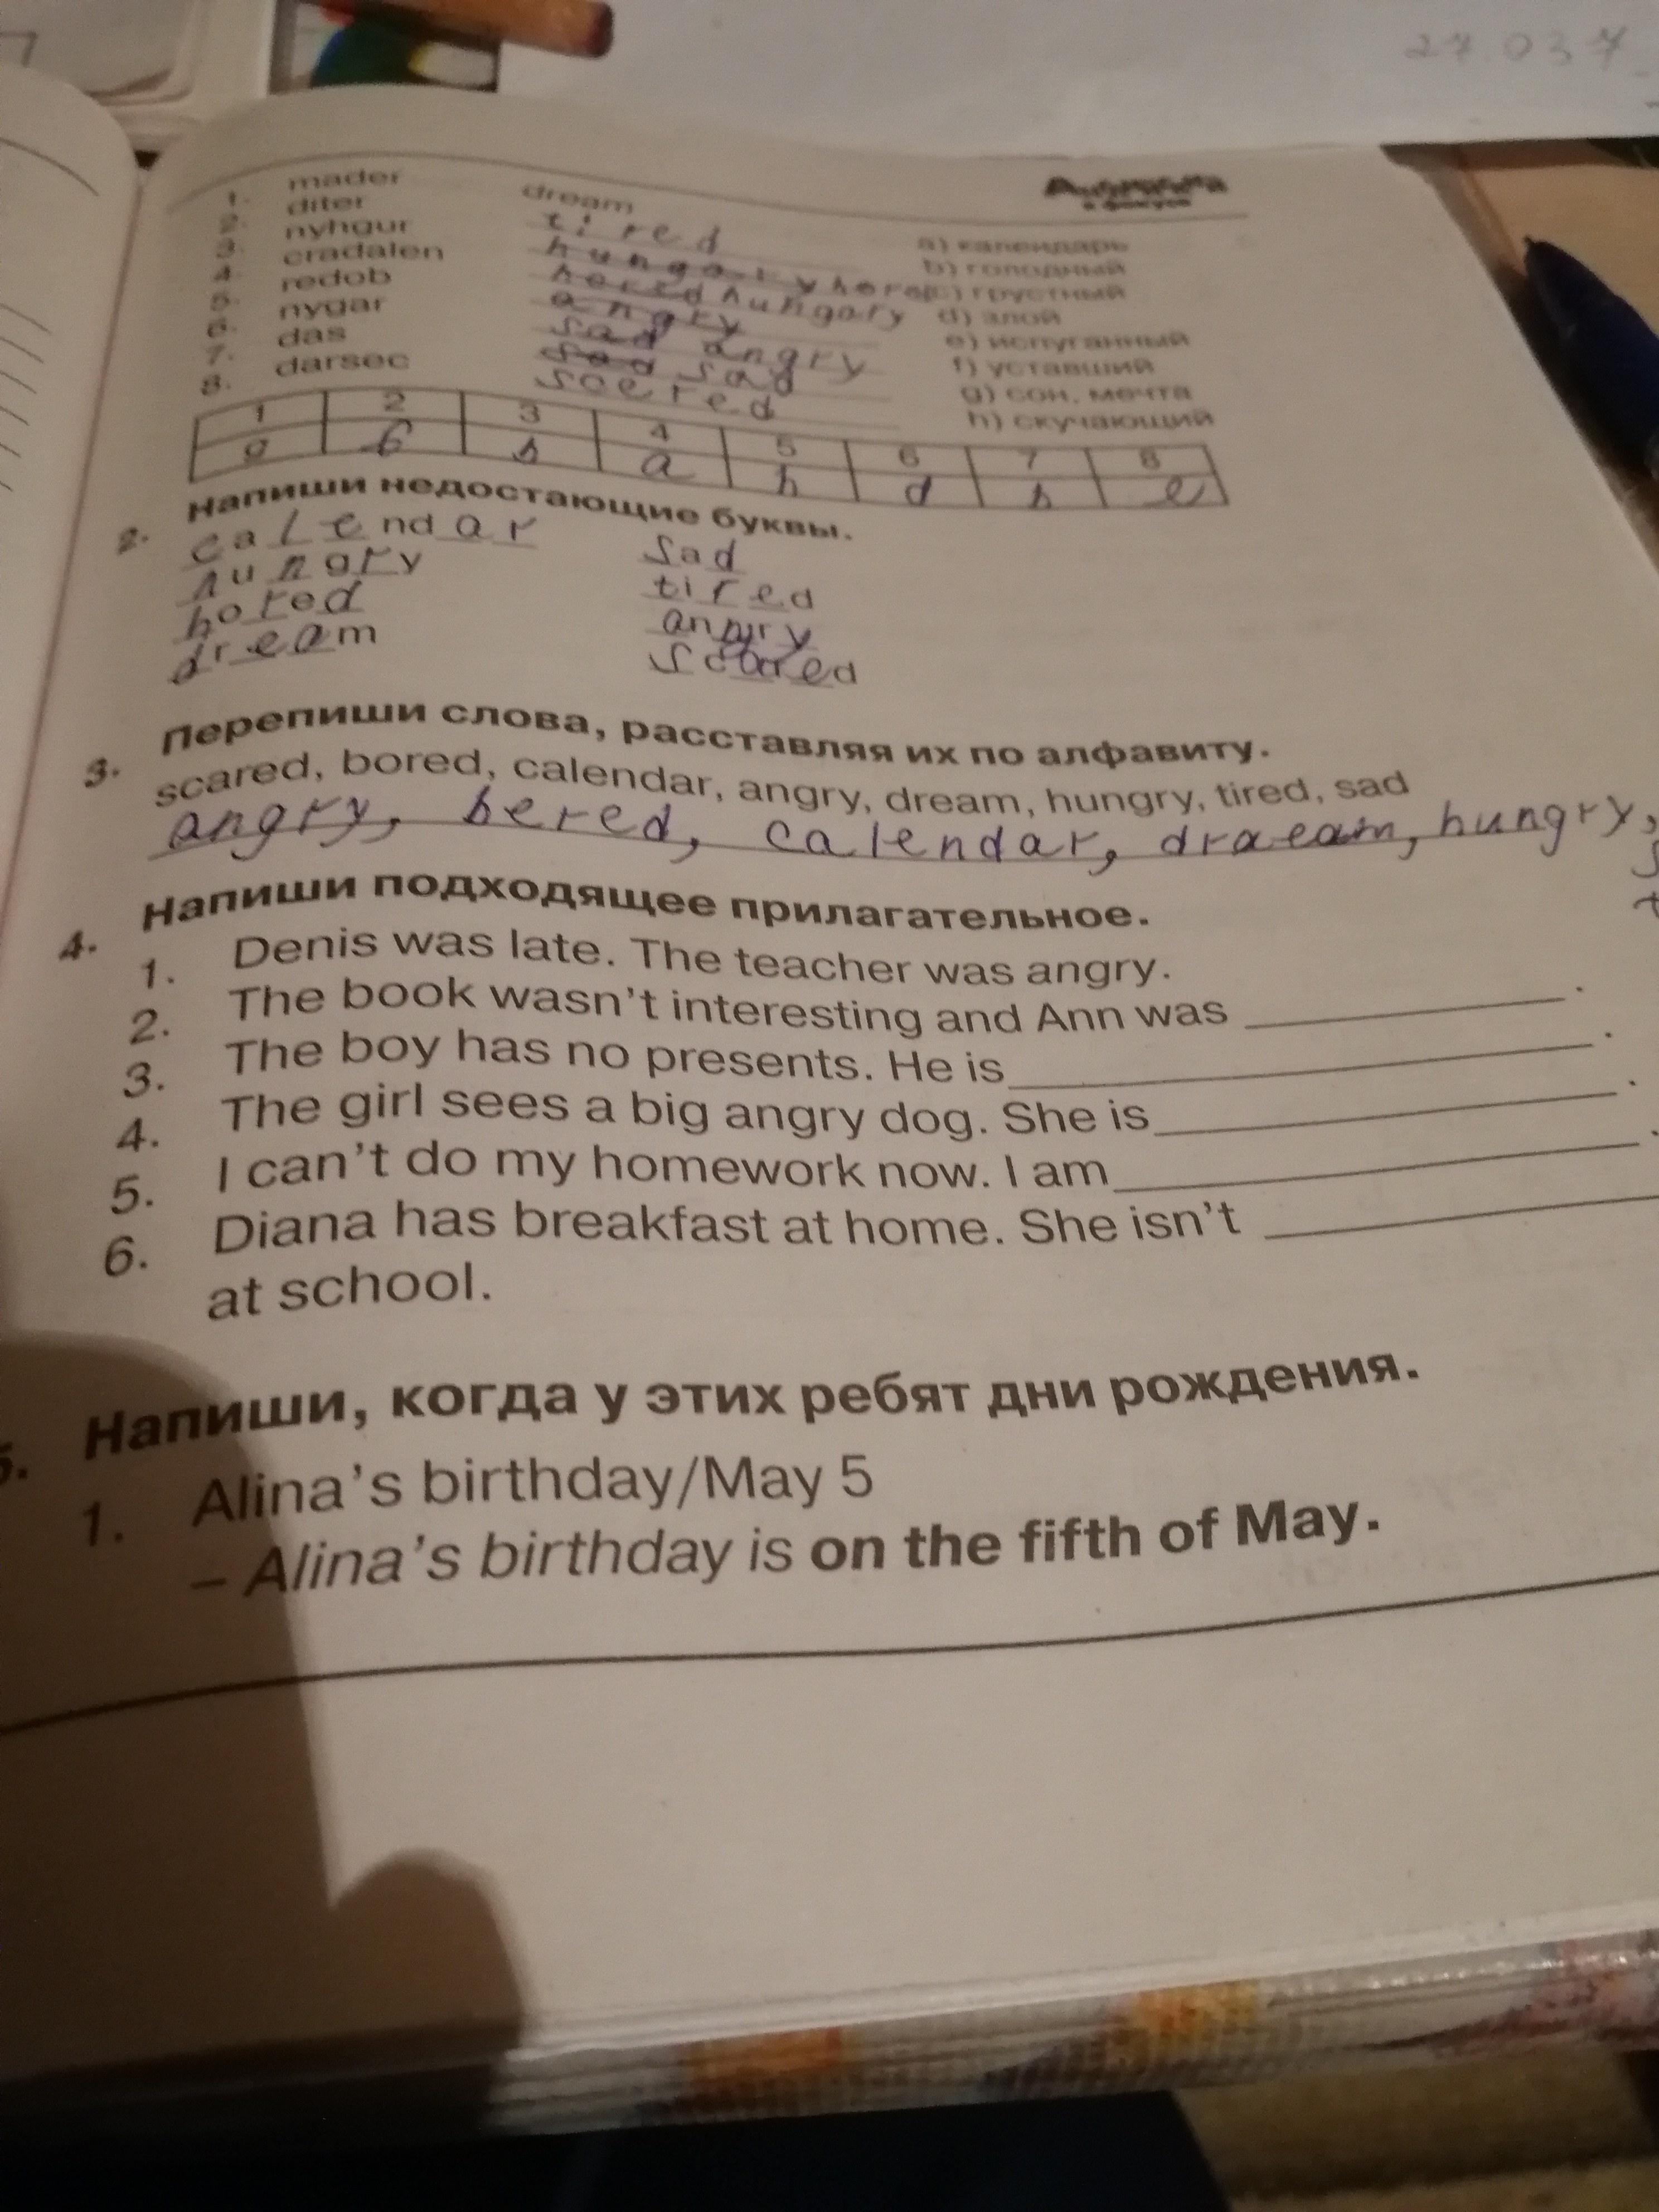 27.03
1. mader dream
2. diter tired
3. nyhgur
4. cradalen
5. redob
6. nygar angry
7. das sad
8. darsec scered
a) календарь
b) голодный
c) грустный
d) злой
e) испуганный
f) уставший
g) сон, мечта
h) скучающий
1 2 3 4 5 6 7 8
g b a h d e
2. Напиши недостающие буквы.
calendar sad
hungry tired
bored angry
dream scared
3. Перепиши слова, расставляя их по алфавиту.
scared, bored, calendar, angry, dream, hungry, tired, sad
angry, bered, calendar, draeam, hungry,
4. Напиши подходящее прилагательное.
1. Denis was late. The teacher was angry.
2. The book wasn't interesting and Ann was ____.
3. The boy has no presents. He is ____.
4. The girl sees a big angry dog. She is ____.
5. I can't do my homework now. I am ____.
6. Diana has breakfast at home. She isn't ____
at school.
5. Напиши, когда у этих ребят дни рождения.
1. Alina's birthday/May 5
– Alina's birthday is on the fifth of May.